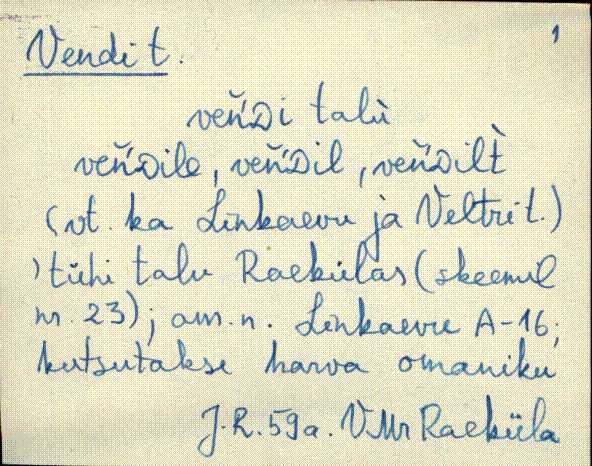 Vendi t. 1
veńᴅi talù
veńᴅile, veńᴅil, veńᴅilt̀
(vt. ka Linkaevu ja Veltri t.)
) tühi talu Raekülas (skeemil
nr. 23); am.n. Linkaevu A-16;
kutsutakse harva omaniku
J.R. 59 a. VMr Raeküla